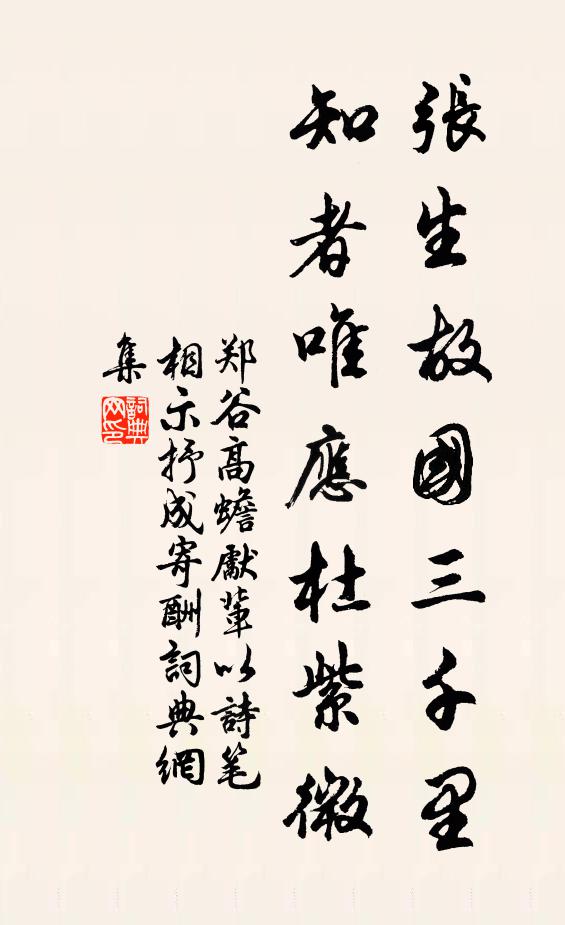 張生故國三千里
知者唯應杜紫微
郑谷高蟾獻輩以詩笔
相示抒成寄酬詞典網
集
詞典
网印